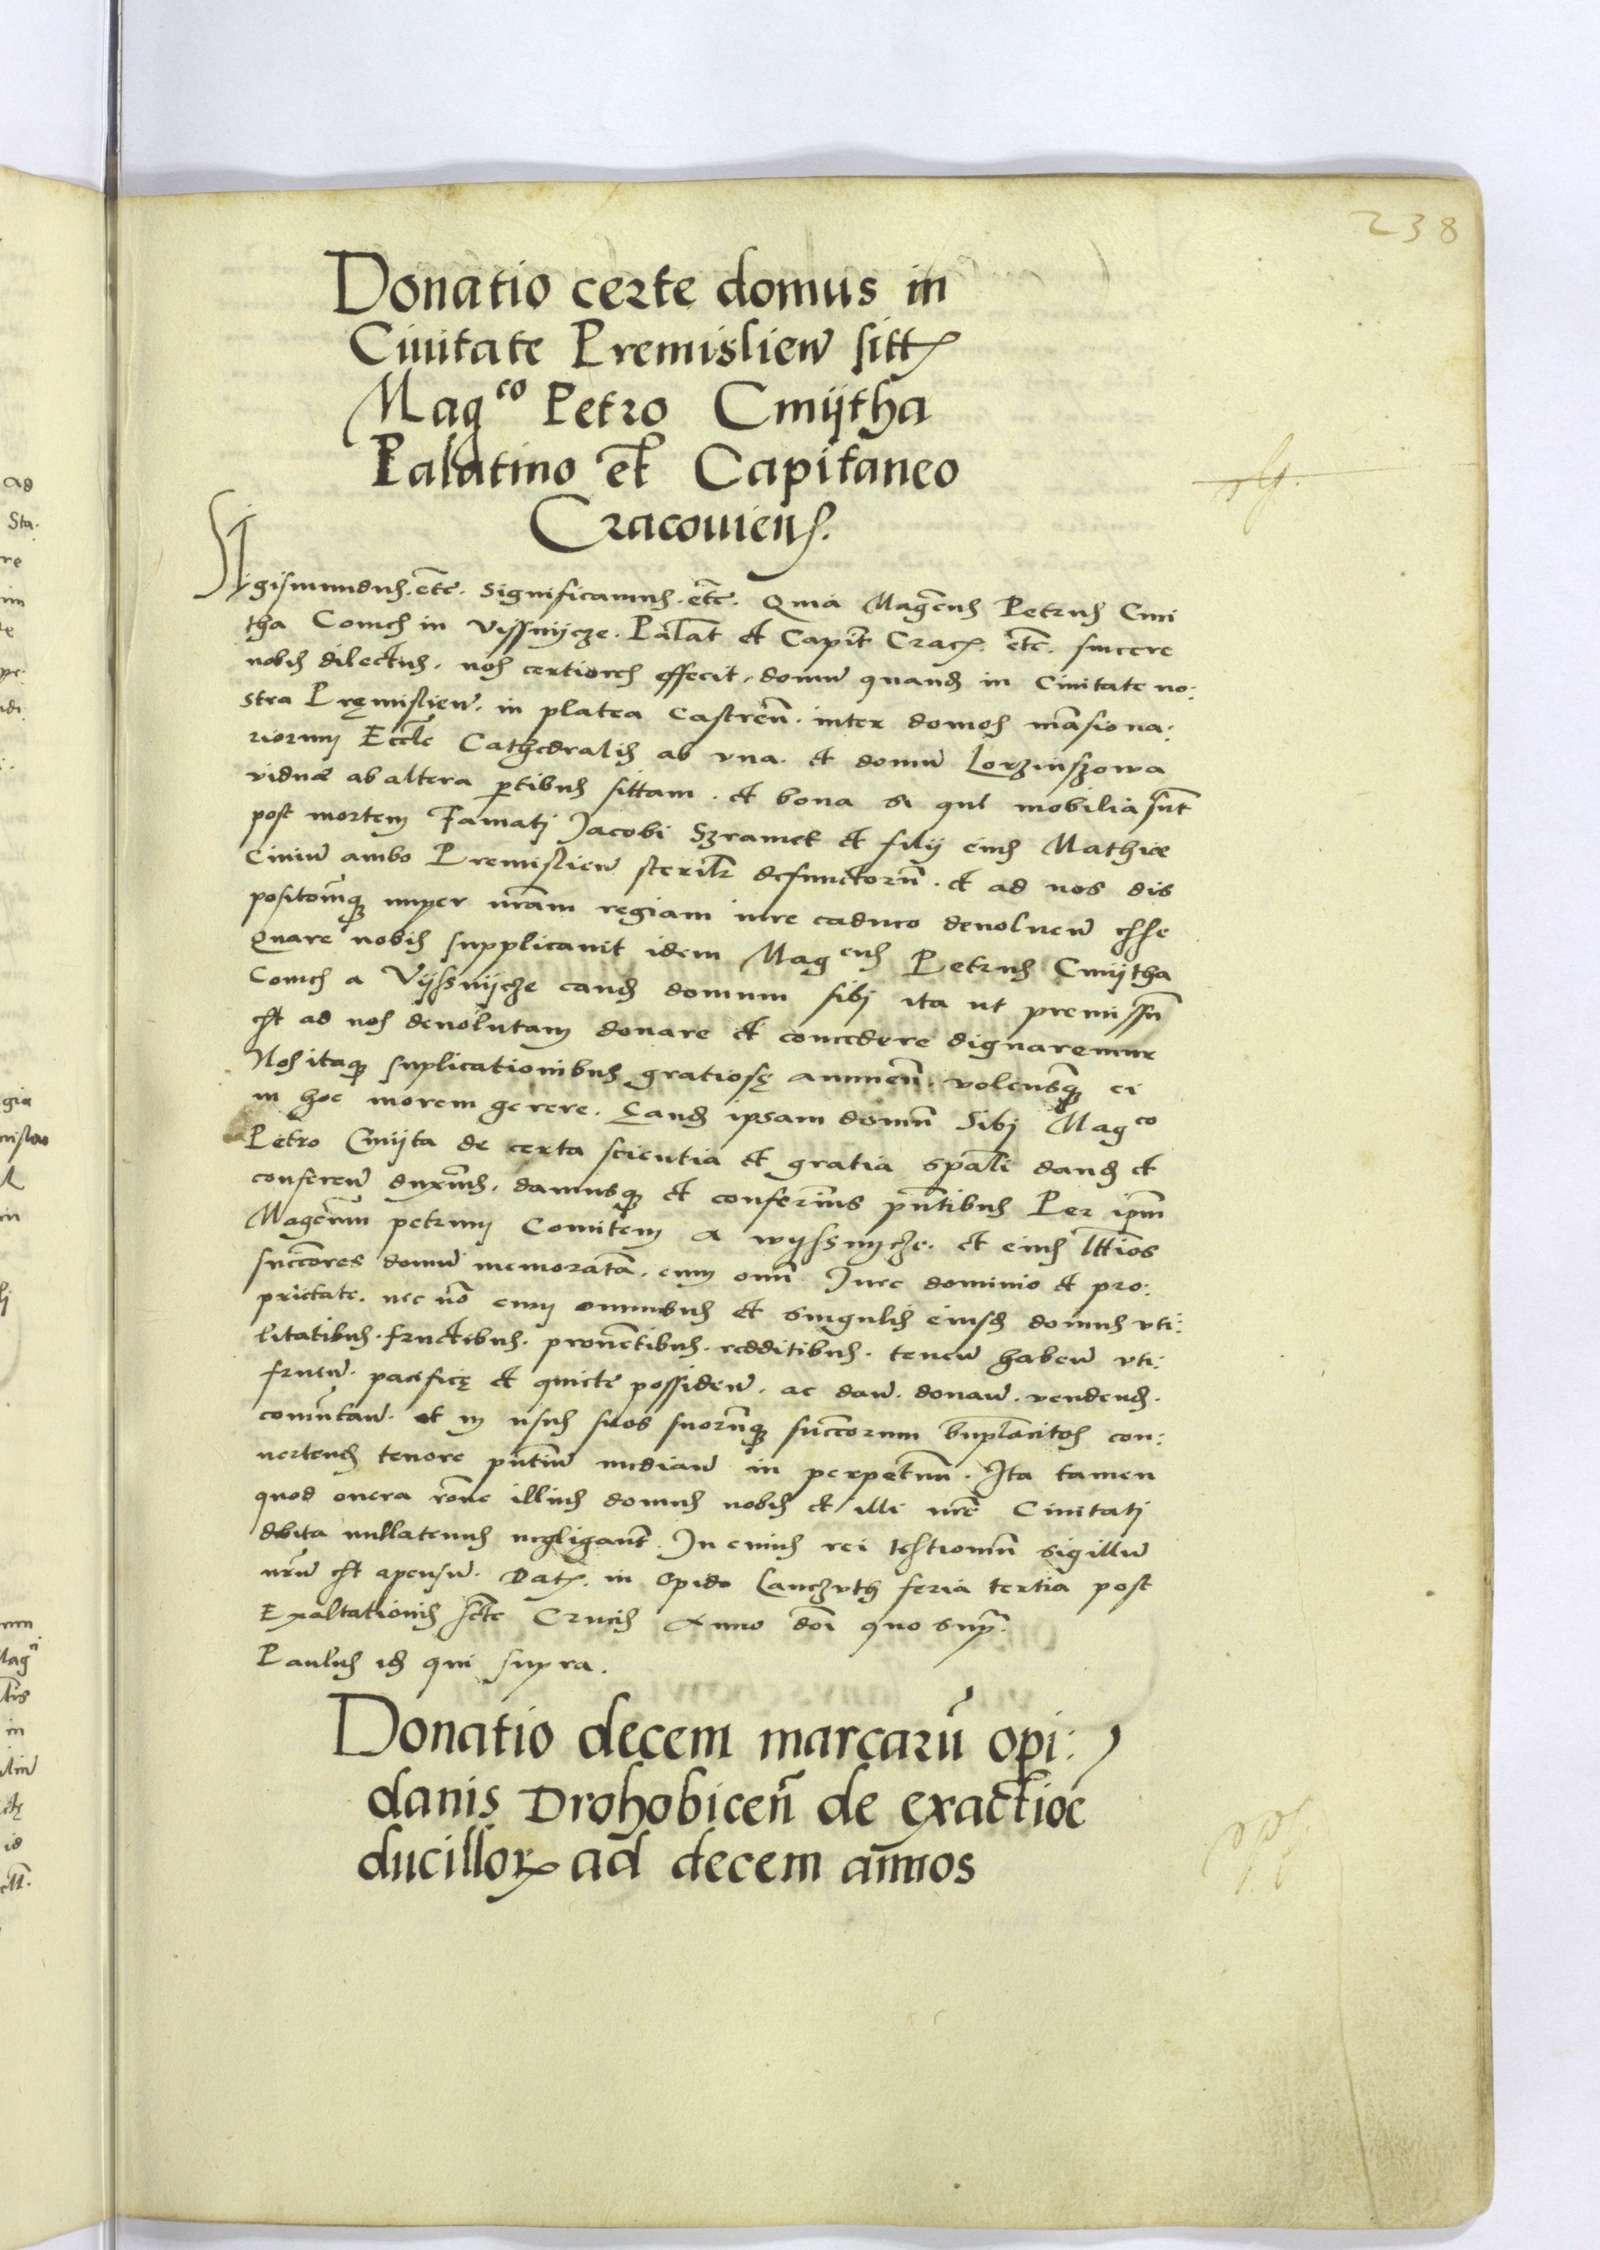 238
Donatio certe domus in
Ciuitate Premislień sitt
Mag^co Petro Cmÿtha
Palatino et Capitaneo
Cracouien.
Sigismundus. etc. Significamus. etc. Quia Magcus Petrus Cmi
tha Comes in Vissnÿcze. Palat et Capit Crac. etc. sincere
nobis dilectus. nos certiores effecit, domū quand in Ciuitate no:
stra Pręmislień. in platea Castreñ. inter domos māsiona:
riorum Eccle Cathedralis ab vna. et domū Lorzinszowa
viduæ ab altera ptibus sittam. et bona si que mobilia sūt
post mortem Famatj Jacobi Szramek et filij eius Mathiæ
Ciuiū ambo Premislień sterilr defunctorū. et ad nos dis
positoēmq nuper nrām regiam iure caduco deuolueń esse
Quare nobis supplicauit idem Mag^cus Petrus Cmÿtha
Comes a Vÿssnÿcze eand domum sibj ita ut premissū
est ad nos deuolutam donare et concedere dignaremur
Nos itaq suplicationibus gratiosę annueñ. volensq ei
in hoc morem gerere. Eand ipsam domū Sibj Mag^co
Petro Cmÿta de certa scientia et gratia spāli dand et
confereń duxims. damusq et conferims pntibus Per ipm
Magcum petrum Comitem a wÿssnycze. et eius lttimos
succores domū memoratā. cum omi Jure dominio et pro:
prietate. nec nō cum omnibus et singulis eiusd domus vti:
litatibus. fructibus. prouētibus. redditibus. teneń habeń vti:
frueń. pacificę et quiete possideń. ac dań. donań. vendend.
comūtań. et in usus suos suorūq succorum bnplacitos con:
uertend tenore pntiū mediań in perpetuum. Ita tamen
quod onera rōne illius domus nobis et illi nre Ciuitatj
debita nullatenus negligant. In cuius rei testiomū sigillū
nrū est apensū. Dat. in Opido Lanczuth feria tertia post
Exaltationis scte Crucis Anno doi quo supr.
Paulus id qui supra.
Donatio decem marcarū opi:
danis Drohobiceñ de exactioe
ducillor ad decem annos